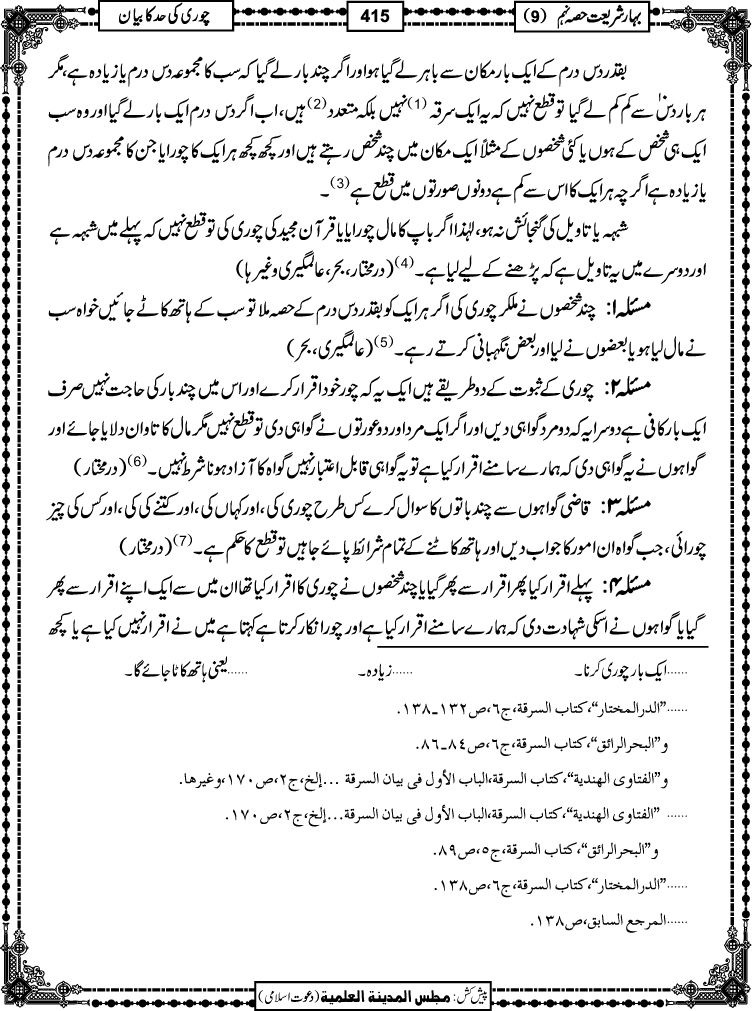 بہار شریعت حصہ نہم (9)
415
چوری کی حد کا بیان
بقدر دس درم کے ایک بار مکان سے باہر لے گیا ہو اور اگر چند بار لے گیا کہ سب کا مجموعہ دس درم یا زیادہ ہے، مگر
ہر بار دس سے کم کم لے گیا تو قطع نہیں کہ یہ ایک سرقہ (1) نہیں بلکہ متعدد (2) ہیں، اب اگر دس درم ایک بار لے گیا اور وہ سب
ایک ہی شخص کے ہوں یا کئی شخصوں کے مثلاً ایک مکان میں چند شخص رہتے ہیں اور کچھ کچھ ہر ایک کا چورایا جن کا مجموعہ دس درم
یا زیادہ ہے اگرچہ ہر ایک کا اس سے کم ہے دونوں صورتوں میں قطع ہے (3) ۔
شبہہ یا تاویل کی گنجائش نہ ہو، لہٰذا اگر باپ کا مال چورایا یا قرآن مجید کی چوری کی تو قطع نہیں کہ پہلے میں شبہہ ہے
اور دوسرے میں یہ تاویل ہے کہ پڑھنے کے لیے لیا ہے۔ (4) (درمختار، بحر، عالمگیری وغیرہا)
مسئلہ ۱: چند شخصوں نے ملکر چوری کی اگر ہر ایک کو بقدر دس درم کے حصہ ملا تو سب کے ہاتھ کاٹے جائیں خواہ سب
نے مال لیا ہو یا بعضوں نے لیا اور بعض نگہبانی کرتے رہے۔ (5) (عالمگیری، بحر)
مسئلہ ۲: چوری کے ثبوت کے دو طریقے ہیں ایک یہ کہ چور خود اقرار کرے اور اس میں چند بار کی حاجت نہیں صرف
ایک بار کافی ہے دوسرا یہ کہ دو مرد گواہی دیں اور اگر ایک مرد اور دو عورتوں نے گواہی دی تو قطع نہیں مگر مال کا تاوان دلایا جائے اور
گواہوں نے یہ گواہی دی کہ ہمارے سامنے اقرار کیا ہے تو یہ گواہی قابل اعتبار نہیں گواہ کا آزاد ہونا شرط نہیں۔ (6) (درمختار)
مسئلہ ۳: قاضی گواہوں سے چند باتوں کا سوال کرے کس طرح چوری کی، اور کہاں کی، اور کتنے کی کی، اور کس کی چیز
چورائی، جب گواہ ان امور کا جواب دیں اور ہاتھ کاٹنے کے تمام شرائط پائے جائیں تو قطع کا حکم ہے۔ (7) (درمختار)
مسئلہ ۴: پہلے اقرار کیا پھر اقرار سے پھر گیا یا چند شخصوں نے چوری کا اقرار کیا تھا ان میں سے ایک اپنے اقرار سے پھر
گیا یا گواہوں نے اسکی شہادت دی کہ ہمارے سامنے اقرار کیا ہے اور چور انکار کرتا ہے کہتا ہے میں نے اقرار نہیں کیا ہے یا کچھ
......ایک بار چوری کرنا۔ ......زیادہ۔ ......یعنی ہاتھ کاٹا جائے گا۔
......"الدرالمختار"،کتاب السرقة،ج٦،ص١٣٢ـ١٣٨.
و"البحرالرائق"،کتاب السرقة،ج٦،ص٨٤ـ٨٦.
و"الفتاوی الهندية"،کتاب السرقة،الباب الأول فی بیان السرقة ...إلخ،ج٢،ص١٧٠،وغیرها.
...... "الفتاوی الهندية"،کتاب السرقة،الباب الأول فی بیان السرقة...إلخ،ج٢،ص١٧٠.
و"البحرالرائق"،کتاب السرقة،ج٥،ص٨٩.
......"الدرالمختار"،کتاب السرقة،ج٦،ص١٣٨.
......المرجع السابق،ص١٣٨.
پیش کش: مجلس المدینة العلمیة (دعوت اسلامی)